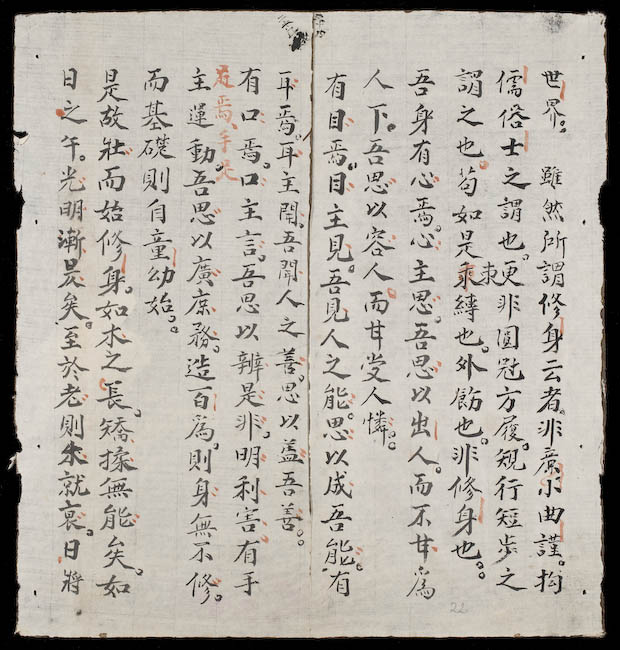 世界。　雖然所謂修身云者。非席小曲謹。拘
儒俗士之謂也。更非圓冠方履。規行短步之
謂之也。苟如是。束縛也。外飭也。非修身也。
吾身有心焉。心主思。吾思以出人。而不甘爲
人下。吾思以容人而甘受人憐。
有目焉。目主見。吾見人之能。思以成吾能。有
耳焉。耳主聞。吾聞人之善。思以益吾善。
有口焉。口主言。吾思以辨是非。明利害有手
足焉、手足
主運動。吾思以廣庶務。造百爲。則身無不修。
而基礎則自童幼始。
是故壯而始修身。如木之長。矯揉無能矣。如
日之午。光明漸昃矣。至於老則朱就裒。日將
22